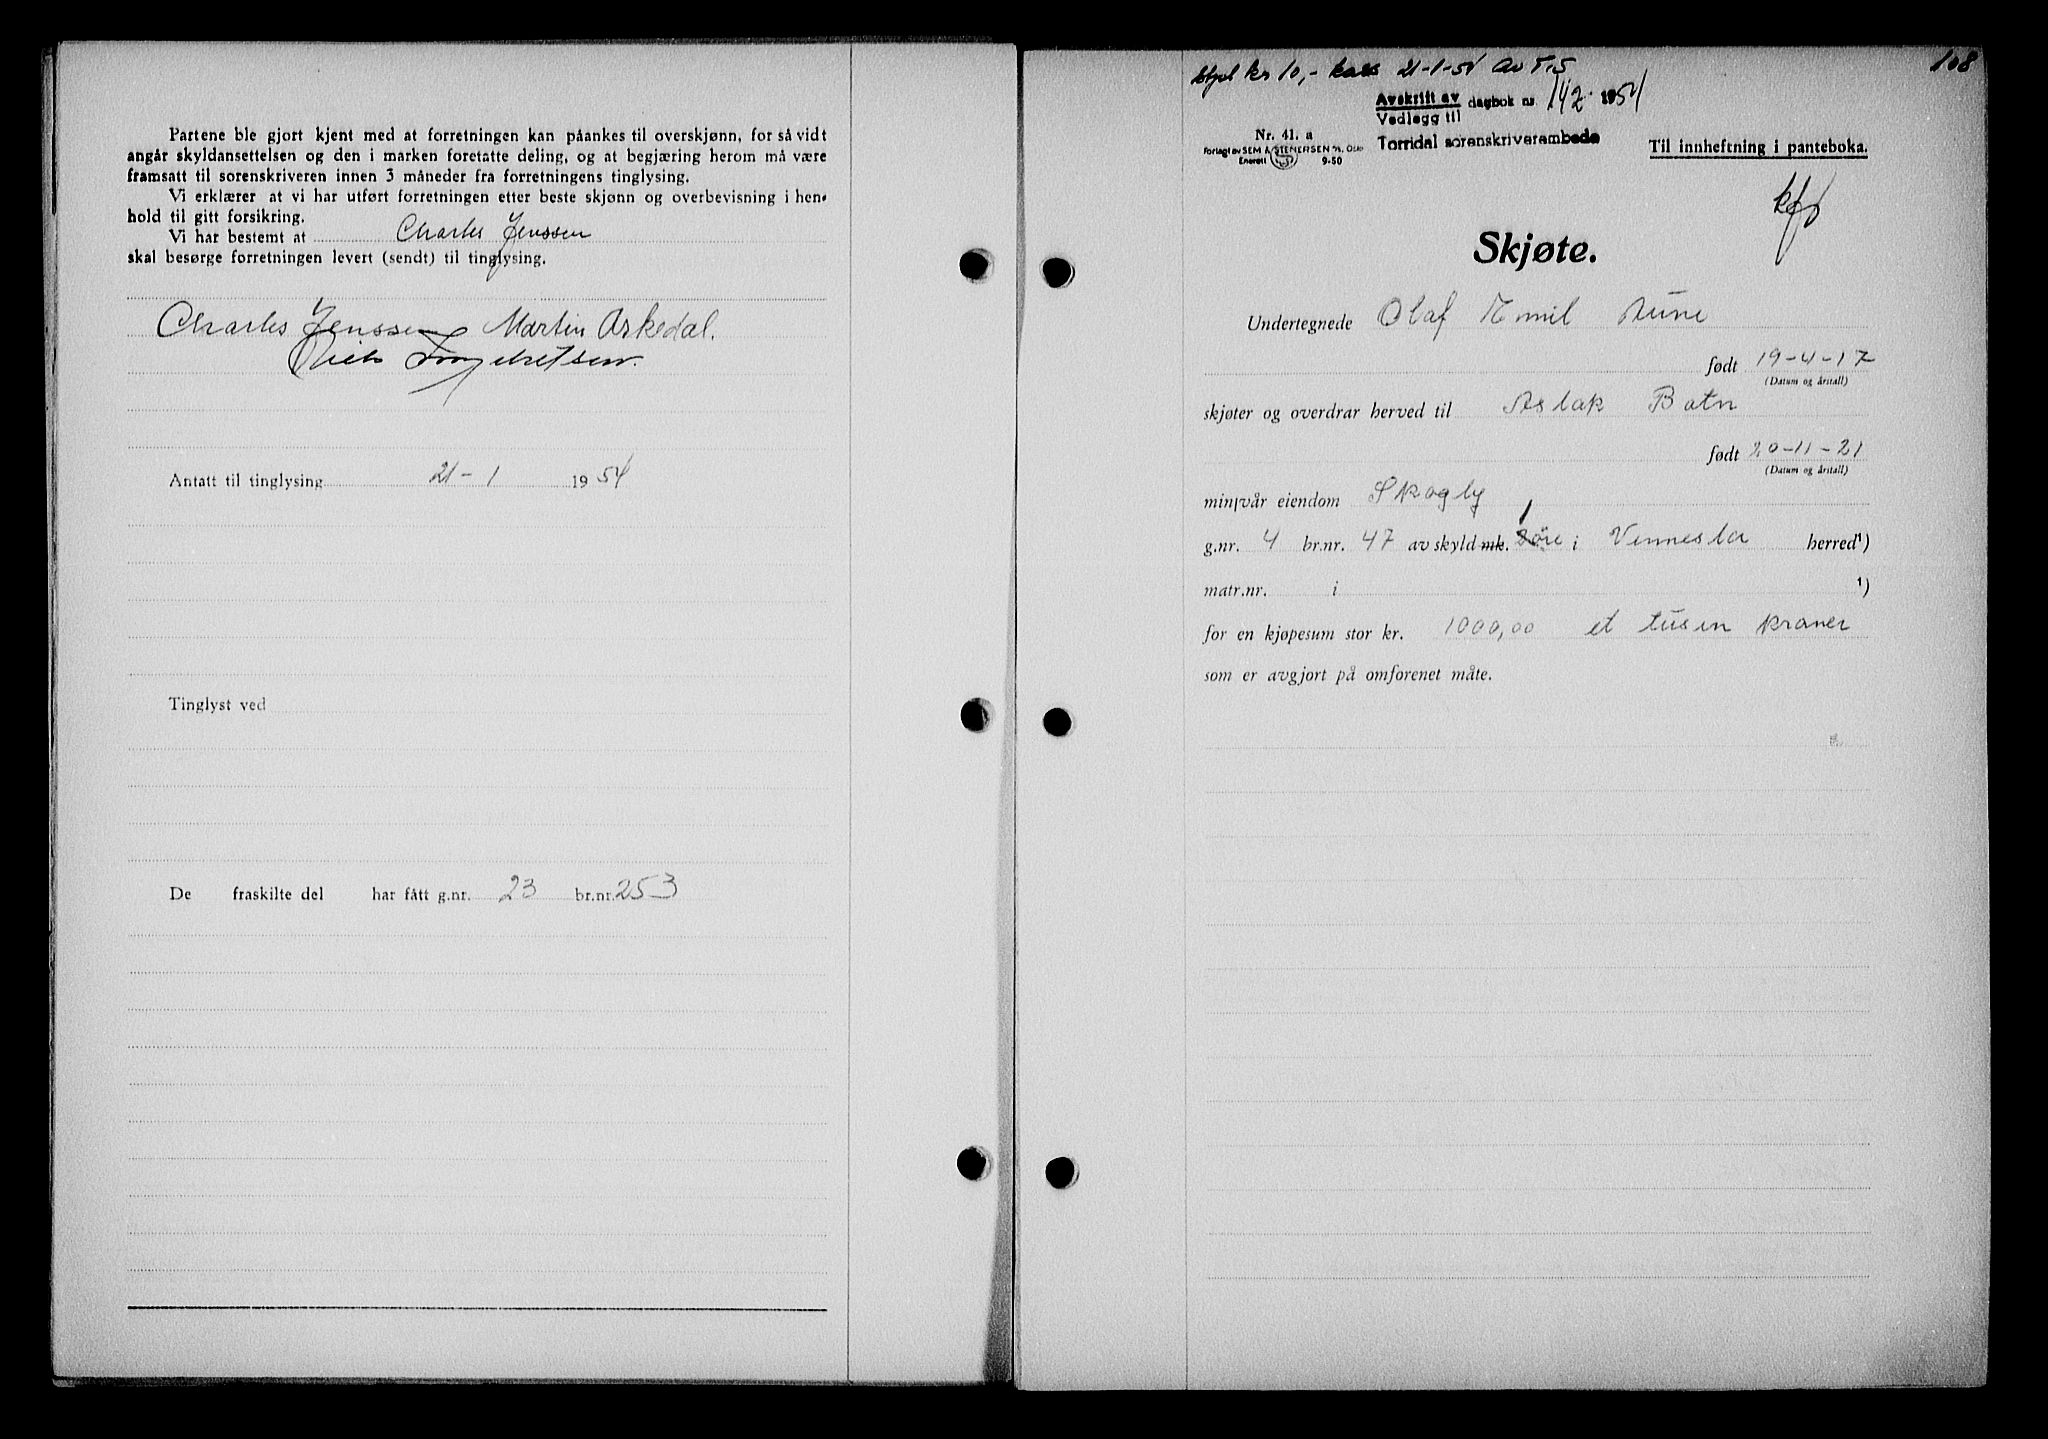 Partene ble gjort kjent med at forretningen kan påankes til overskjønn, for så vidt
angår skyldansettelsen og den i marken foretatte deling, og at begjæring herom må være
framsatt til sorenskriveren innen 3 måneder fra forretningens tinglysing.
Vi erklærer at vi har utført forretningen etter beste skjønn og overbevisning i hen-
hold til gitt forsikring.
Vi har bestemt at Charles Jenssen
skal besørge forretningen levert (sendt) til tinglysing.
Charles Jenssen Martin Askedal.
Antatt til tinglysing 21-1 1954
Tinglyst ved
De fraskilte del har fått g.nr. 23 br.nr. 253
108
kr 10,- 21-1-54 av T.S
Avskrift av
Vedlegg til dagbok nr. 142 1954
Torridal sorenskriverembede
Nr. 41. a
Forlagt av SEM & STENERSEN A/S, Oslo
Enerett 9-50
Til innheftning i panteboka.
Skjøte.
Undertegnede Olaf Emil Aune
født 19-4-17
(Datum og årstall)
skjøter og overdrar herved til Aslak Batn
født 20-11-21
(Datum og årstall)
min/vår eiendom Skogly
g.nr. 4 br.nr. 47 av skyld mk. 1 øre i Vennesla herred¹)
matr.nr. i ¹)
for en kjøpesum stor kr. 1000,00 et tusen kroner
som er avgjort på omforenet måte.